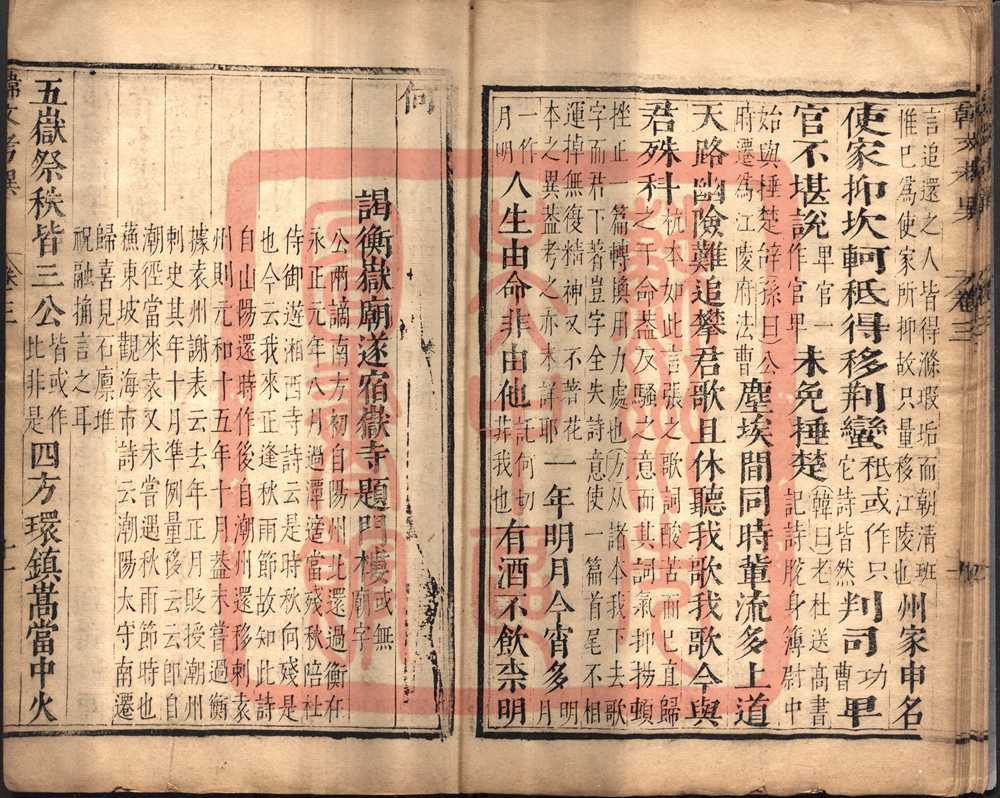 言追還之人皆得滌瑕垢而朝清班
惟已爲使家所抑故只量移江陵也 州家申名
使家抑坎軻秪得移荆蠻 秪或作只 它詩皆然 判司功曹
官不堪說 卑官一作官卑 未免捶楚 韓曰老杜送高書記詩脫身簿尉中
始與捶楚辭孫曰公時遷爲江陵府法曹 塵埃間同時輩流多上道
天路幽險難追攀君歌且休聽我歌我歌今與
君殊科 杭本如此言張之歌詞酸苦而已直歸之于命蓋反騷之意而其詞氣抑揚頓
挫正一篇轉換用力處也方从諸本我下去歌
字而君下著豈字全失詩意使一篇首尾不相
運掉無復精神又不著花
本之異蓋考之亦未詳耶 一年明月今宵多
一作月明 人生由命非由他 非我也 有酒不飲柰明
何
謁衡嶽廟遂宿嶽寺題門樓 或無廟字
公兩謫南方初自陽州北還過衡在
永正元年八月過潭遊當殘秋陪杜
侍御遊湘西寺詩云是時秋向殘是
也今云我來正逢秋雨節故知此詩
自山陽還時作後自潮州還移刺袁
州則元和十五年十月蓋未嘗過衡
據袁州謝表云去年正月貶授潮州
刺史其年十月準例量移云云卽自
潮徑當來袁又未嘗遇秋雨節時也
蘓東坡觀海市詩云潮陽太守南遷
歸喜見石廩堆
祝融捅言之耳
五嶽祭秩皆三公 皆或作比非是 四方環鎮嵩當中火
卷三